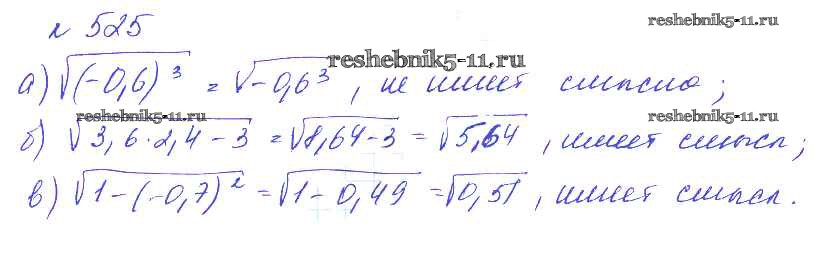 № 525 reshebnik5-11.ru
а) √(-0,6)³ = √-0,6³, не имеет смысла; reshebnik5-11.ru
б) √3,6·2,4-3 = √8,64-3 = √5,64, имеет смысл; reshebnik5-11.ru reshebnik5-11.ru
в) √1-(-0,7)² = √1-0,49 = √0,51, имеет смысл.